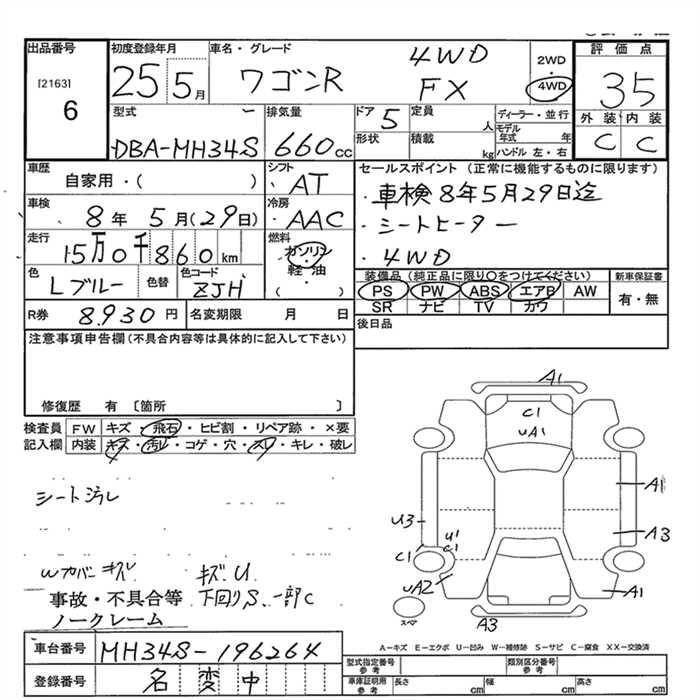 出品番号 初度登録年月 車名・グレード 評価点
[2163]
6
25 5月 ワゴンR 4WD FX
2WD
4WD
35
外装 内装
C C
型式 排気量 ドア 定員 ディーラー・並行
DBA-MH34S 660cc 5 人 モデル年式 年
形状 積載 kg ハンドル 左・右
車歴 シフト セールスポイント (正常に機能するものに限ります)
自家用・( ) AT ・車検8年5月29日迄
車検 冷房 ・シートヒーター
8年5月(29日) AAC ・4WD
走行 燃料
15万0千860km ガソリン
軽・油
( )
色 色替 色コード
Lブルー ZJH
装備品(純正品に限り○をつけてください) 新車保証書
PS PW ABS エアB AW 有・無
SR ナビ TV カワ
R券 8,930円 名変期限 月 日 後日品
注意事項申告欄(不具合内容等は具体的に記入して下さい)
修復歴 有 [箇所 ]
検査員 FW キズ・飛石・ヒビ割・リペア跡・×要
記入欄 内装 キズ・汚れ・コゲ・穴・スレ・キレ・破レ
シート汚レ
Wカバーキズ キズU
事故・不具合等 下回りS、一部C
ノークレーム
A1
C1
UA1
A1
U3 A3
U1
C1 C1
UA2 A1
スペア A3
A－キズ E－エクボ U－凹み W－補修跡 S－サビ C－腐食 XX－交換済
車台番号 MH34S-196264
登録番号 名変中
型式指定番号 参考 類別区分番号 参考
車庫証明用 参考 長さ cm 幅 cm 高さ cm